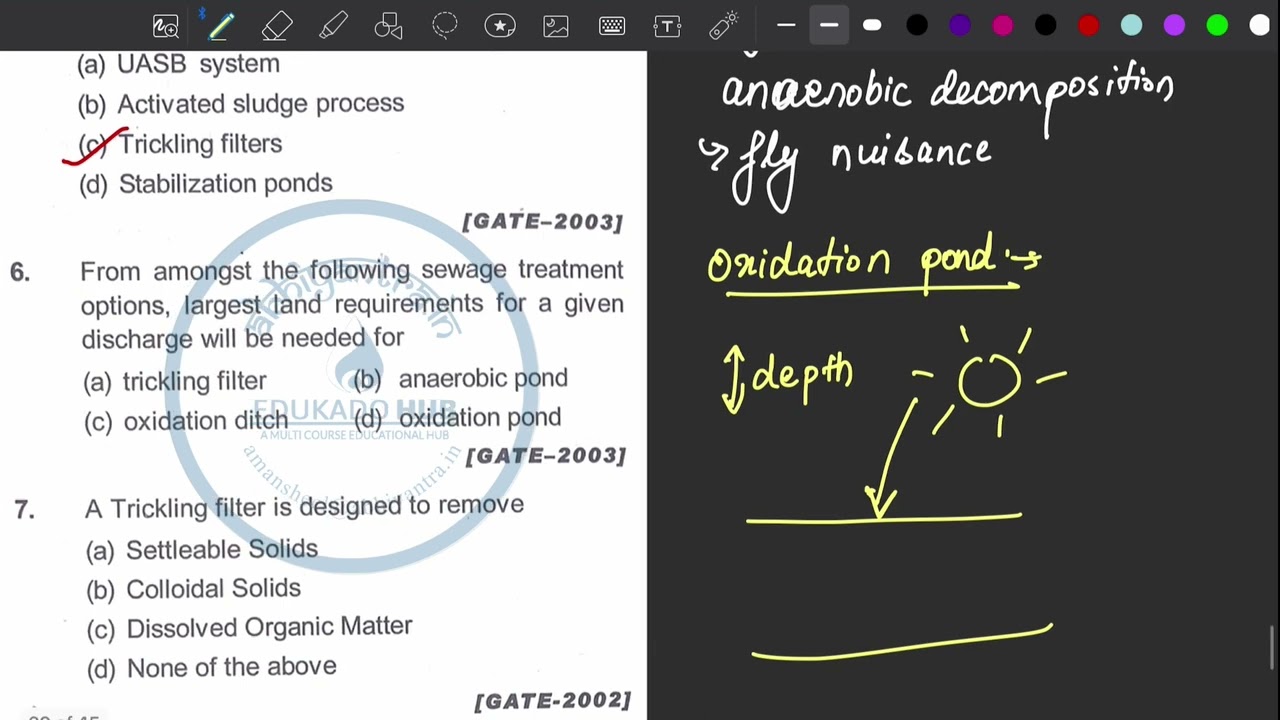 (a) UASB system
(b) Activated sludge process
(c) Trickling filters
(d) Stabilization ponds
[GATE–2003]
6. From amongst the following sewage treatment
options, largest land requirements for a given
discharge will be needed for
(a) trickling filter (b) anaerobic pond
(c) oxidation ditch (d) oxidation pond
[GATE–2003]
7. A Trickling filter is designed to remove
(a) Settleable Solids
(b) Colloidal Solids
(c) Dissolved Organic Matter
(d) None of the above
[GATE-2002]
abhiyantrain
EDUKADO HUB
A MULTI COURSE EDUCATIONAL HUB
anaerobic decomposition
fly nuisance
oxidation pond
depth